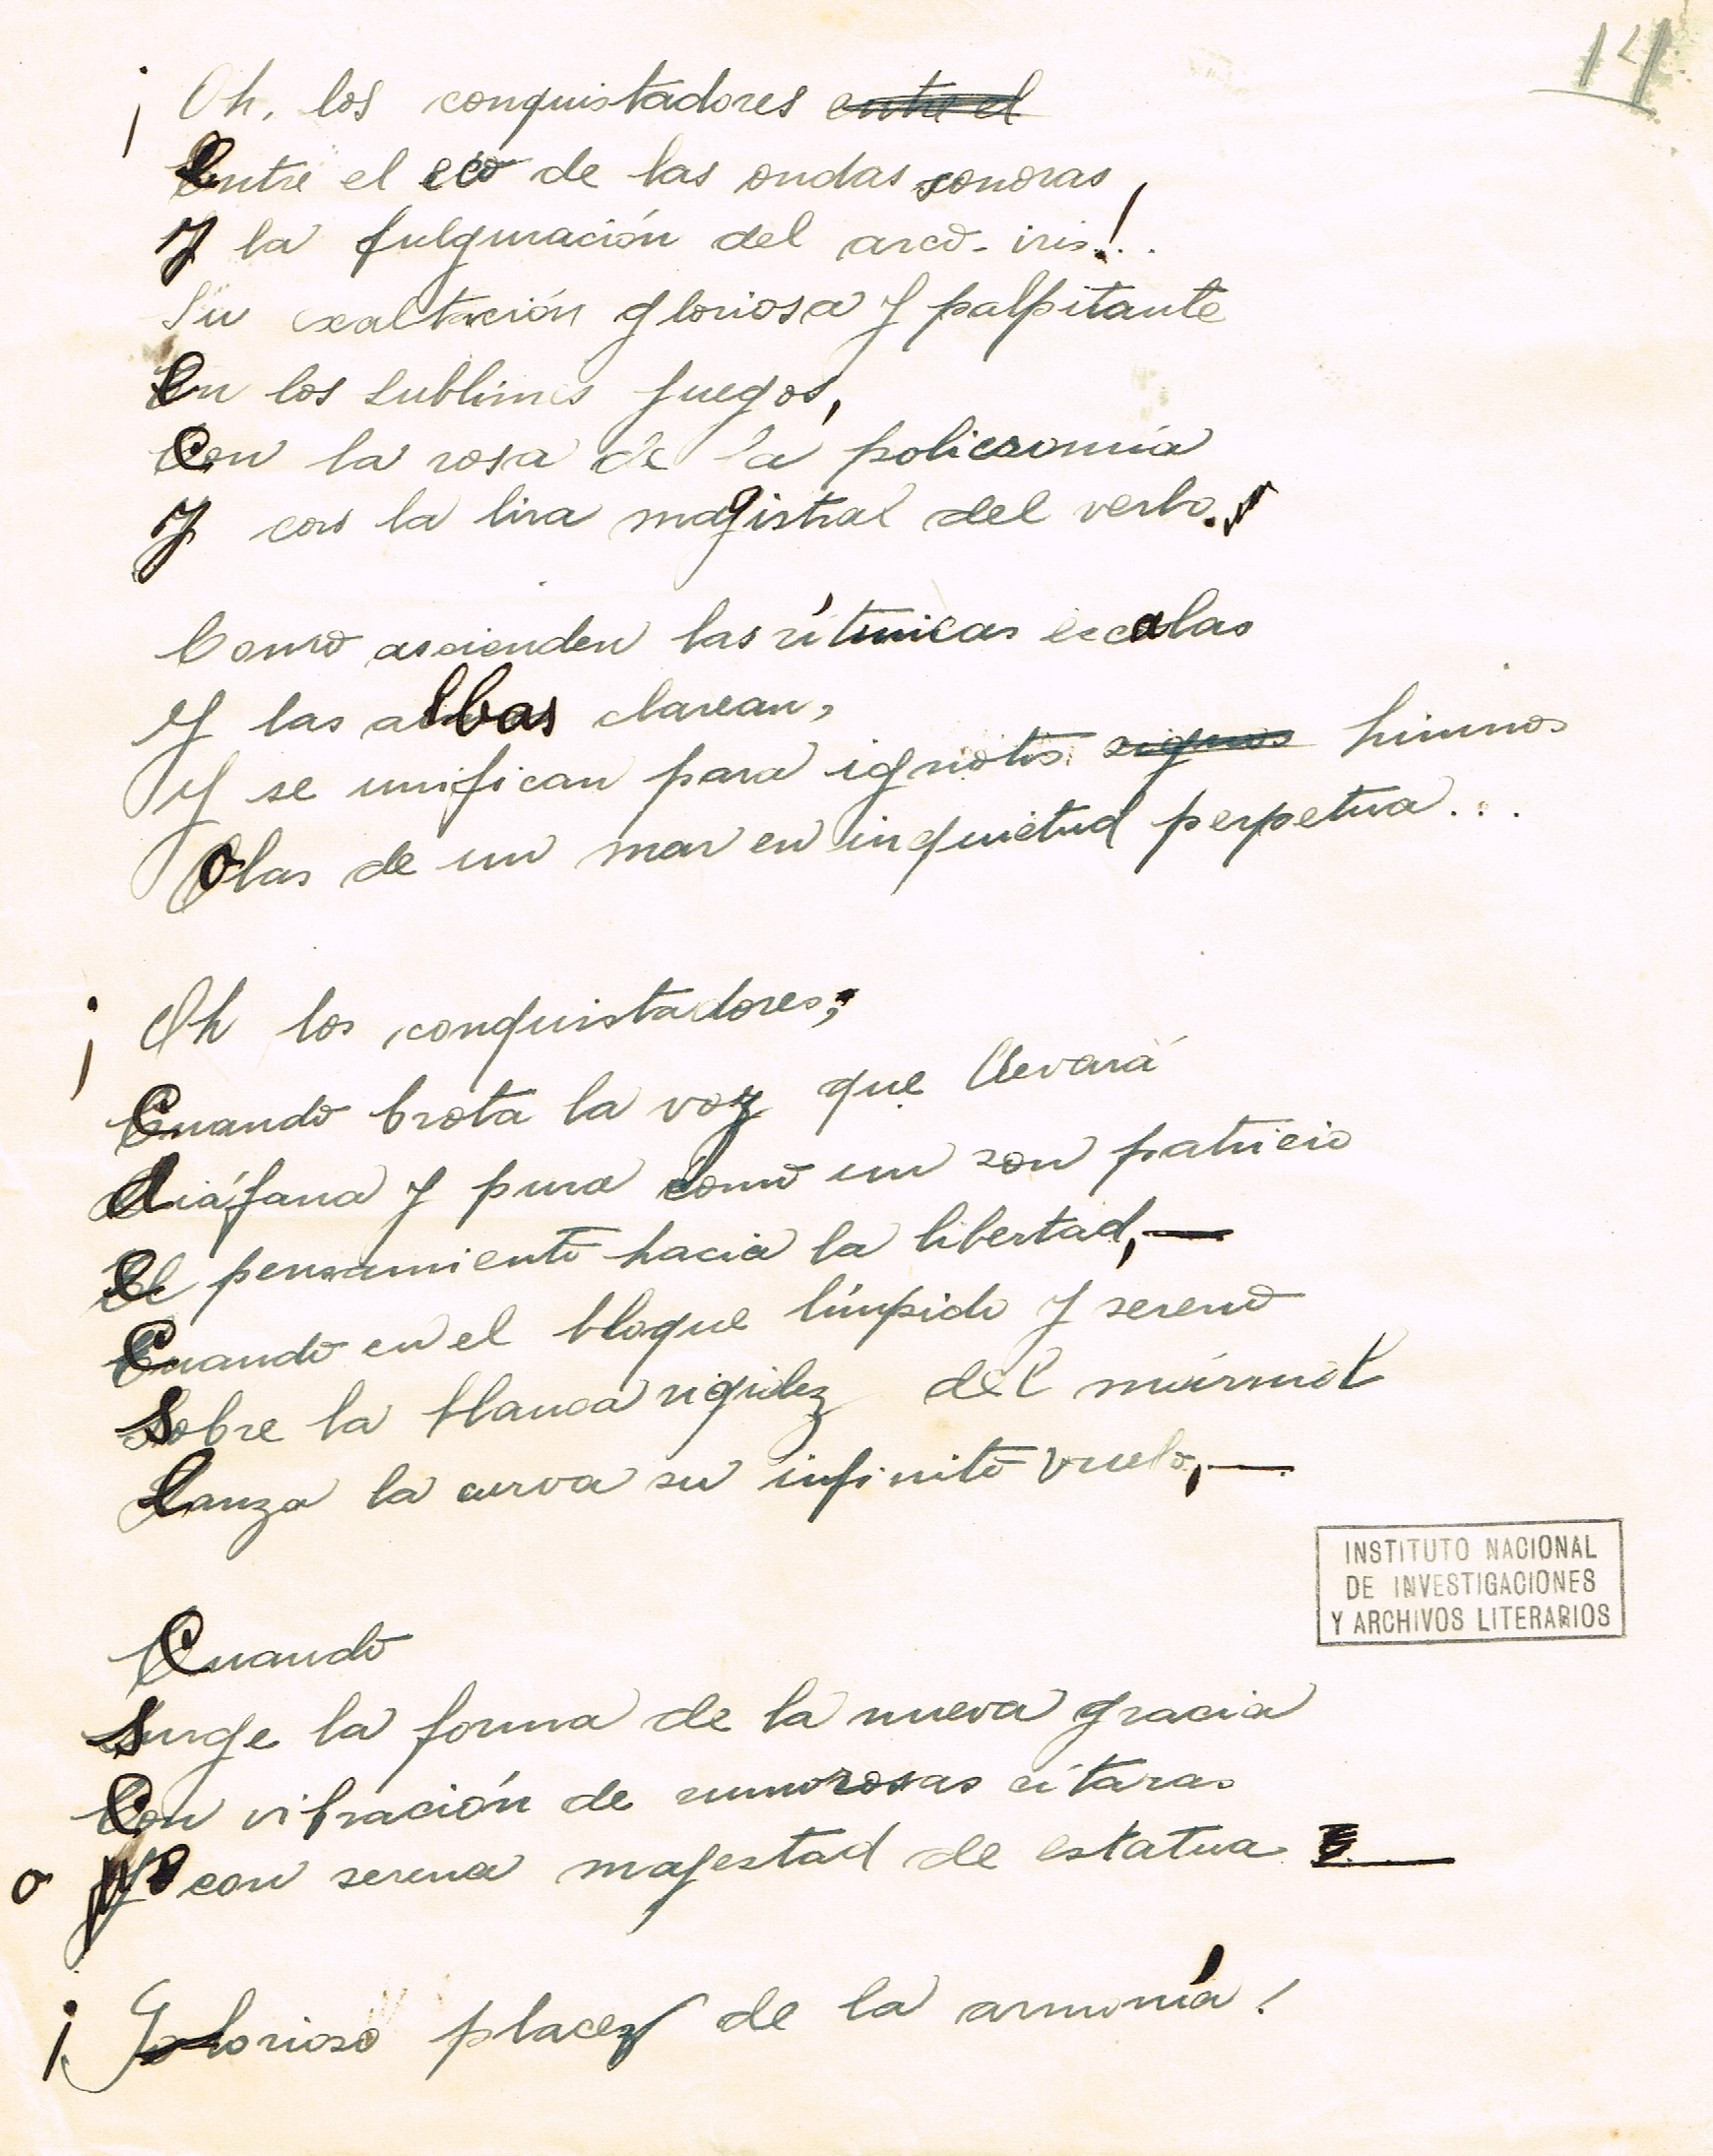 14
¡Oh, los conquistadores entre el
entre el eco de las ondas sonoras,
y la fulguración del arco-iris!..
Su exaltación gloriosa y palpitante
en los sublimes fuegos,
con la rosa de la policromía
y con la lira magistral del verbo.
Como ascienden las rítmicas escalas
Y las albas clarean,
Y se unifican para ignotos signos himnos
olas de un mar en inquietud perpetua...
¡Oh los conquistadores;
Cuando brota la voz que llevará
diáfana y pura como un son patricio
el pensamiento hacia la libertad,—
Cuando en el bloque límpido y sereno
sobre la blanca rigidez del mármol
lanza la curva su infinito vuelo,—
INSTITUTO NACIONAL
DE INVESTIGACIONES
Y ARCHIVOS LITERARIOS
Cuando
surge la forma de la nueva gracia
con vibración de rumorosas cítaras
o con serena magestad de estatua —
¡Glorioso placer de la armonía!